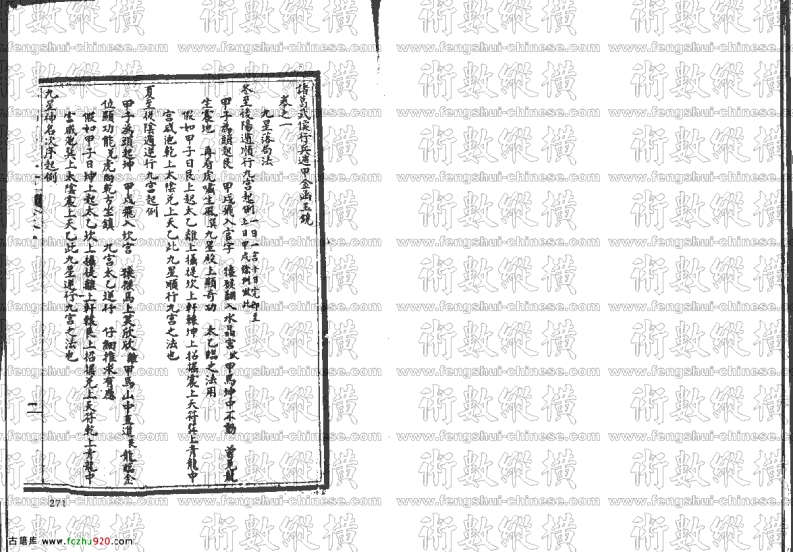 諸葛武侯行兵遁甲金函玉鏡
卷之一
九星落局法
冬至後陽遁順行九宮起例
甲子為頭起艮 甲戌飛入 猿猴翻入水晶宮 甲馬坤中不動 曾見龍
生震地 再看虎嘯生風 九星股上顯奇功 太乙臨之法用
假如甲子日艮上起太乙離上攝提坎上軒轅坤上招搖震上天符巽上青龍中
宮咸池乾上太陰兌上天乙此九星順行九宮之法也
夏至後陰遁逆行九宮起例
甲子為頭起坤 甲戌飛入坎宮 猿猴馬上 甲馬山中直道 龍
位顯功能 虎向乾方坐鎮 九宮太乙逆行 仔細推求有應
假如甲子日坤上起太乙坎上攝提離上軒轅艮上招搖兌上天符乾上青龍中
宮咸池巽上太陰震上天乙此九星逆行九宮之法也
九星神名次序起例
271
術數縱橫
www.fengshui-chinese.com
古籍库 www.fczhu920.com